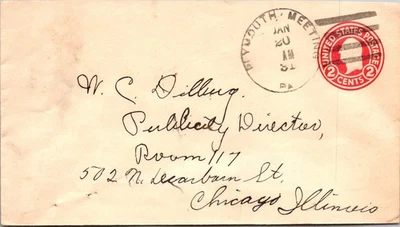 PLYMOUTH MEETING
JAN
20
AM
31
PA
UNITED STATES POSTAGE
2 CENTS 2
W. C. Dilling.
Publicity Director,
Room 117
502 N. Dearborn St.
Chicago Illinois